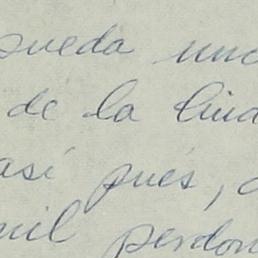 queda un
de la
así pues,
mil perdon